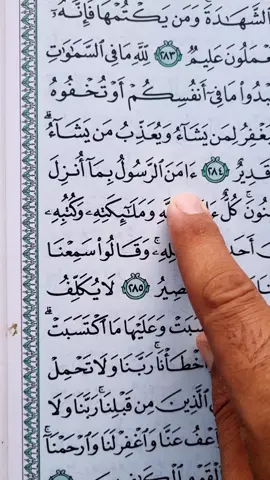 الشَّهَٰدَةَ وَمَن يَكْتُمْهَا فَإِنَّهُ
عْمَلُونَ عَلِيمٌ ٢٨٣ لِّلَّهِ مَا فِي السَّمَٰوَٰتِ
بْدُوا مَا فِي أَنفُسِكُمْ أَوْ تُخْفُوهُ
يَغْفِرُ لِمَن يَشَاءُ وَيُعَذِّبُ مَن يَشَاءُ
قَدِيرٌ ٢٨٤ ءَامَنَ الرَّسُولُ بِمَا أُنزِلَ
نُونَ كُلٌّ وَمَلَٰئِكَتِهِ وَكُتُبِهِ
وَقَالُوا سَمِعْنَا
صِيرُ ٢٨٥ لَا يُكَلِّفُ
سَبَتْ وَعَلَيْهَا مَا اكْتَسَبَتْ
خْطَأْنَا رَبَّنَا وَلَا تَحْمِلْ
الَّذِينَ مِن قَبْلِنَا رَبَّنَا وَلَا
عْفُ عَنَّا وَاغْفِرْ لَنَا وَارْحَمْنَا